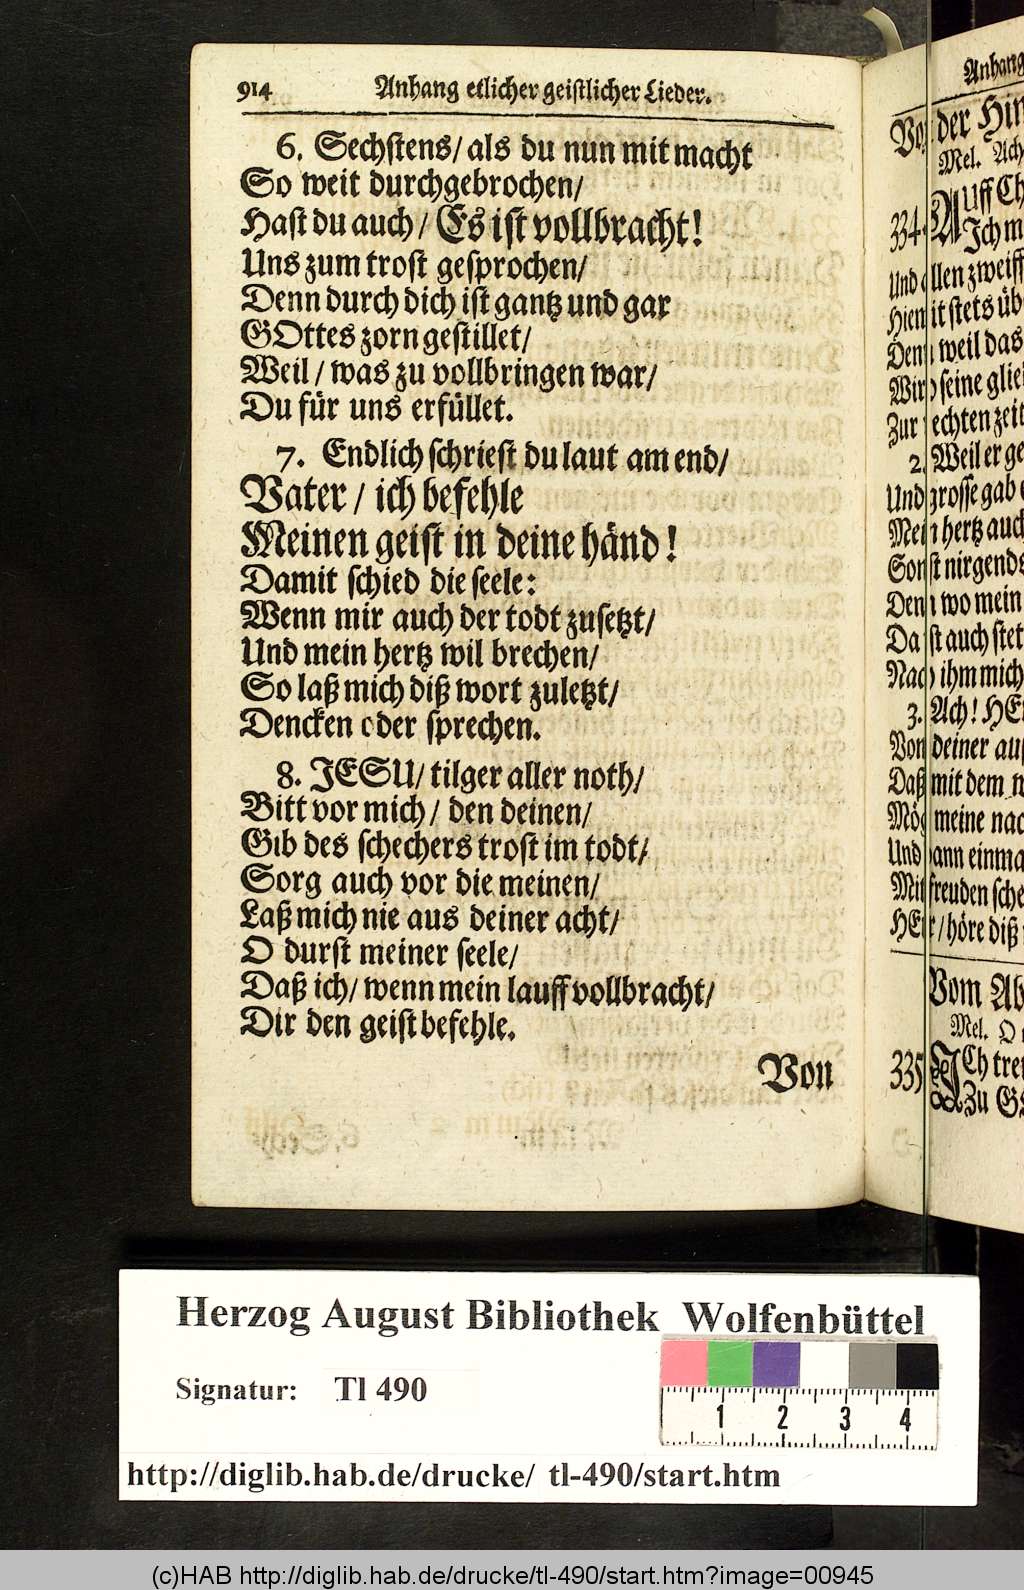 914 Anhang etlicher geistlicher Lieder.
6. Sechstens/ als du nun mit macht
So weit durchgebrochen/
Hast du auch/ Es ist vollbracht!
Uns zum trost gesprochen/
Denn durch dich ist gantz und gar
GOttes zorn gestillet/
Weil/ was zu vollbringen war/
Du für uns erfüllet.
7. Endlich schriest du laut am end/
Vater/ ich befehle
Meinen geist in deine händ!
Damit schied die seele:
Wenn mir auch der todt zusetzt/
Und mein hertz wil brechen/
So laß mich diß wort zuletzt/
Dencken oder sprechen.
8. JESU/ tilger aller noth/
Bitt vor mich/ den deinen/
Gib des schechers trost im todt/
Sorg auch vor die meinen/
Laß mich nie aus deiner acht/
O durst meiner seele/
Daß ich/ wenn mein lauff vollbracht/
Dir den geist befehle.
Von
Anhang
der
Mel.
334.
Ich
weil das
seine
2. Weil er
hertz auch
nirgends
wo mein
auch
ihm mich
3. Ach!
deiner
mit dem
meine
Und
freuden
höre diß
Vom
Mel. O
335
Zu
Herzog August Bibliothek Wolfenbüttel
Signatur: Tl 490
1 2 3 4
http://diglib.hab.de/drucke/ tl-490/start.htm
(c)HAB http://diglib.hab.de/drucke/tl-490/start.htm?image=00945